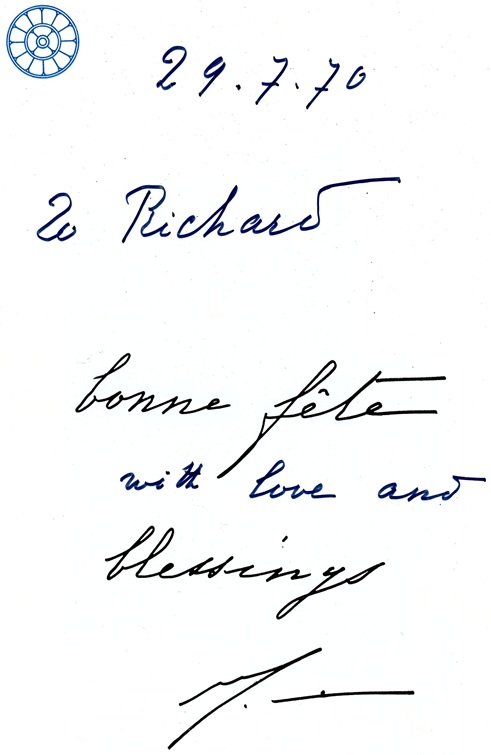 29.7.70
To Richard
bonne fête
with love and
blessings